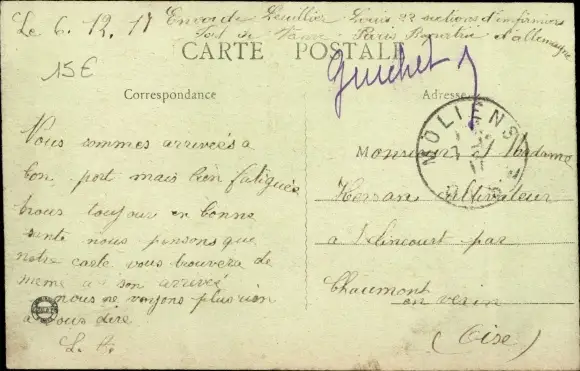 Le 6. 12. 17 Envoi de Leuillier Louis 22 sections d'infirmiers
Fort de Vanve Paris Rapatrié d'allemagne
CARTE POSTALE
15€
Guichet
Correspondance
Adresse
Vous sommes arrivées a
bon port mais bien fatiguées
nous toujour en bonne
sente nous pensons que
notre carte vous trouvera de
meme a son arrivée
nous ne voyons plus rien
a vous dire
L. A.
MOLIENS
Monsieur Madame
Hersan cultivateur
a Idincourt par
Chaumont
en vexin
(Oise)